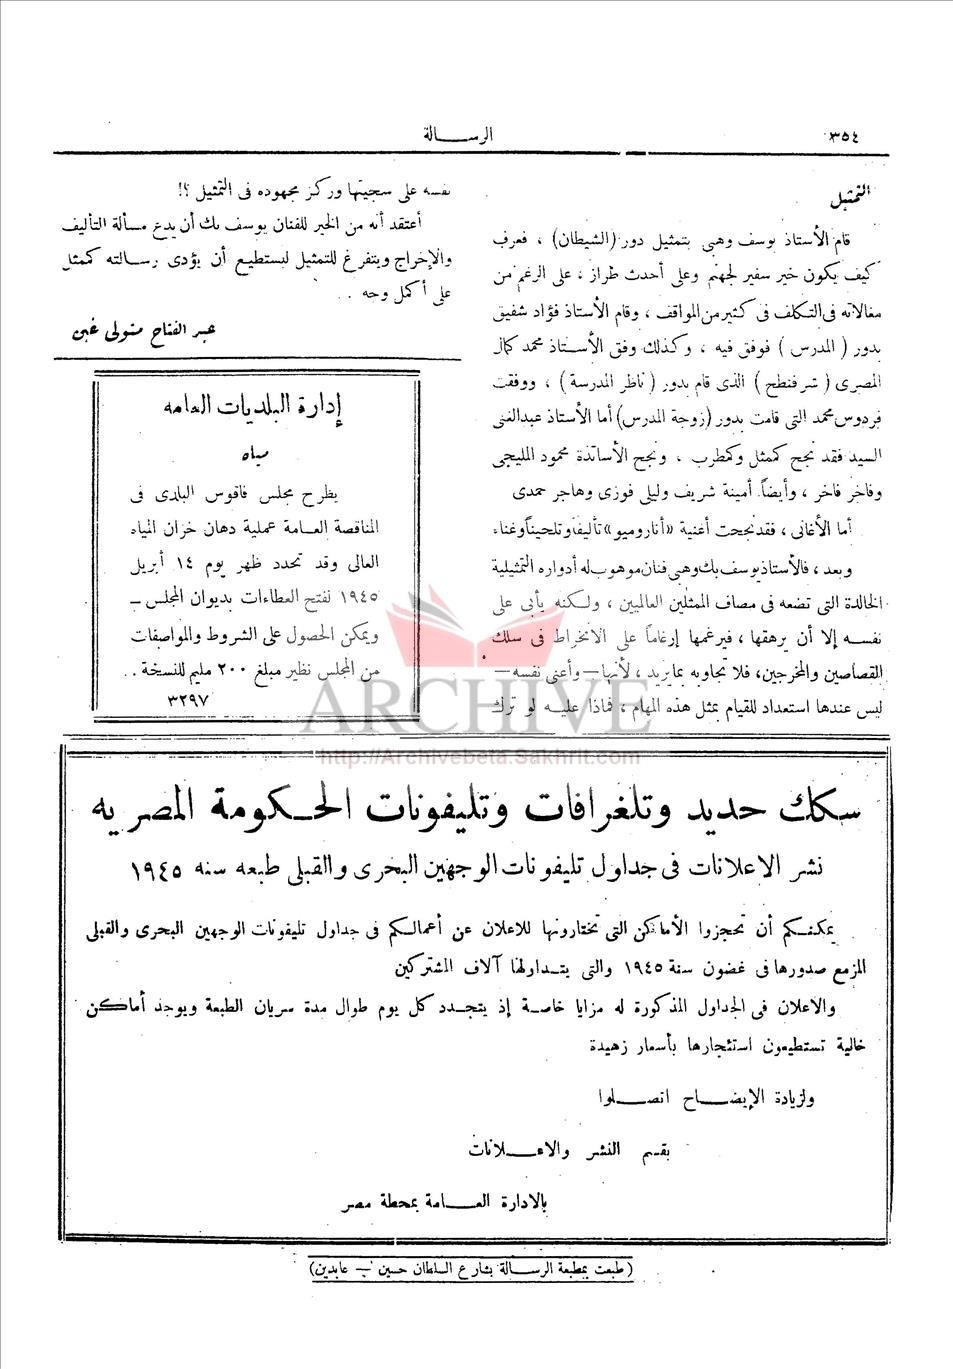 ٣٥٤
الرســـالة
التمثيل
قام الأستاذ يوسف وهبى بتمثيل دور (الشيطان) ، فعرف
كيف يكون خير سفير لجهنم وعلى أحدث طراز ، على الرغم من
مغالاته فى التكلف فى كثير من المواقف ، وقام الأستاذ فؤاد شفيق
بدور ( المدرس ) فوفق فيه ، وكذلك وفق الأستاذ محمد كمال
المصرى ( شرفنطح ) الذى قام بدور ( ناظر المدرسة ) ، ووفقت
فردوس محمد التى قامت بدور (زوجة المدرس) أما الأستاذ عبدالغنى
السيد فقد نجح كممثل وكمطرب ، ونجح الأساتذة محمود المليجى
وفاخر فاخر ، وأيضاً أمينة شريف وليلى فوزى وهاجر حمدى
أما الأغانى ، فقد نجحت أغنية «أنا روميو» تأليفاً وتلحيناً وغناء
وبعد ، فالأستاذ يوسف بك وهبى فنان موهوب له أدواره التمثيلية
الخالدة التى تضعه فى مصاف الممثلين العالميين ، ولكنه يأبى على
نفسه إلا أن يرهقها ، فيرغمها إرغاماً على الانخراط فى سلك
القصاصين والمخرجين، فلا تجاوبه بما يريد ، لأنها — وأعنى نفسه —
ليس عندها استعداد للقيام بمثل هذه المهام ، فماذا عليه لو ترك
نفسه على سجيتها وركز مجهوده فى التمثيل ؟!
أعتقد أنه من الخير للفنان يوسف بك أن يدع مسألة التأليف
والإخراج ويتفرغ للتمثيل ليستطيع أن يؤدى رسالته كممثل
على أكمل وجه . .
عبد الفتاح متولى غبن
إدارة البلديات العامه
مياه
يطرح مجلس فاقوس البلدى فى
المناقصة العامة عملية دهان خزان المياه
العالى وقد تحدد ظهر يوم ١٤ أبريل
١٩٤٥ لفتح العطاءات بديوان المجلس —
ويمكن الحصول على الشروط والمواصفات
من المجلس نظير مبلغ ٢٠٠ مليم للنسخة . .
٣٢٩٧
ARCHIVE
http://Archivebeta.Sakhrit.com
سكك حديد وتلغرافات وتليفونات الحكومة المصريه
نشر الاعلانات فى جداول تليفونات الوجهين البحرى والقبلى طبعه سنه ١٩٤٥
يمكنكم أن تحجزوا الأماكن التى تختارونها للاعلان عن أعمالكم فى جداول تليفونات الوجهين البحرى والقبلى
المزمع صدورها فى غضون سنة ١٩٤٥ والتى يتداولها آلاف المشتركين
والاعلان فى الجداول المذكورة له مزايا خاصة إذ يتجدد كل يوم طوال مدة سريان الطبعة ويوجد أماكن
خالية تستطيعون استئجارها بأسعار زهيدة
ولزيادة الإيضـــاح اتصـــلوا
بقسم النشر والاعـــلانات
بالادارة العـــامة بمحطة مصر
( طبعت بمطبعة الرســـالة بشارع السلطان حسين — عابدين)